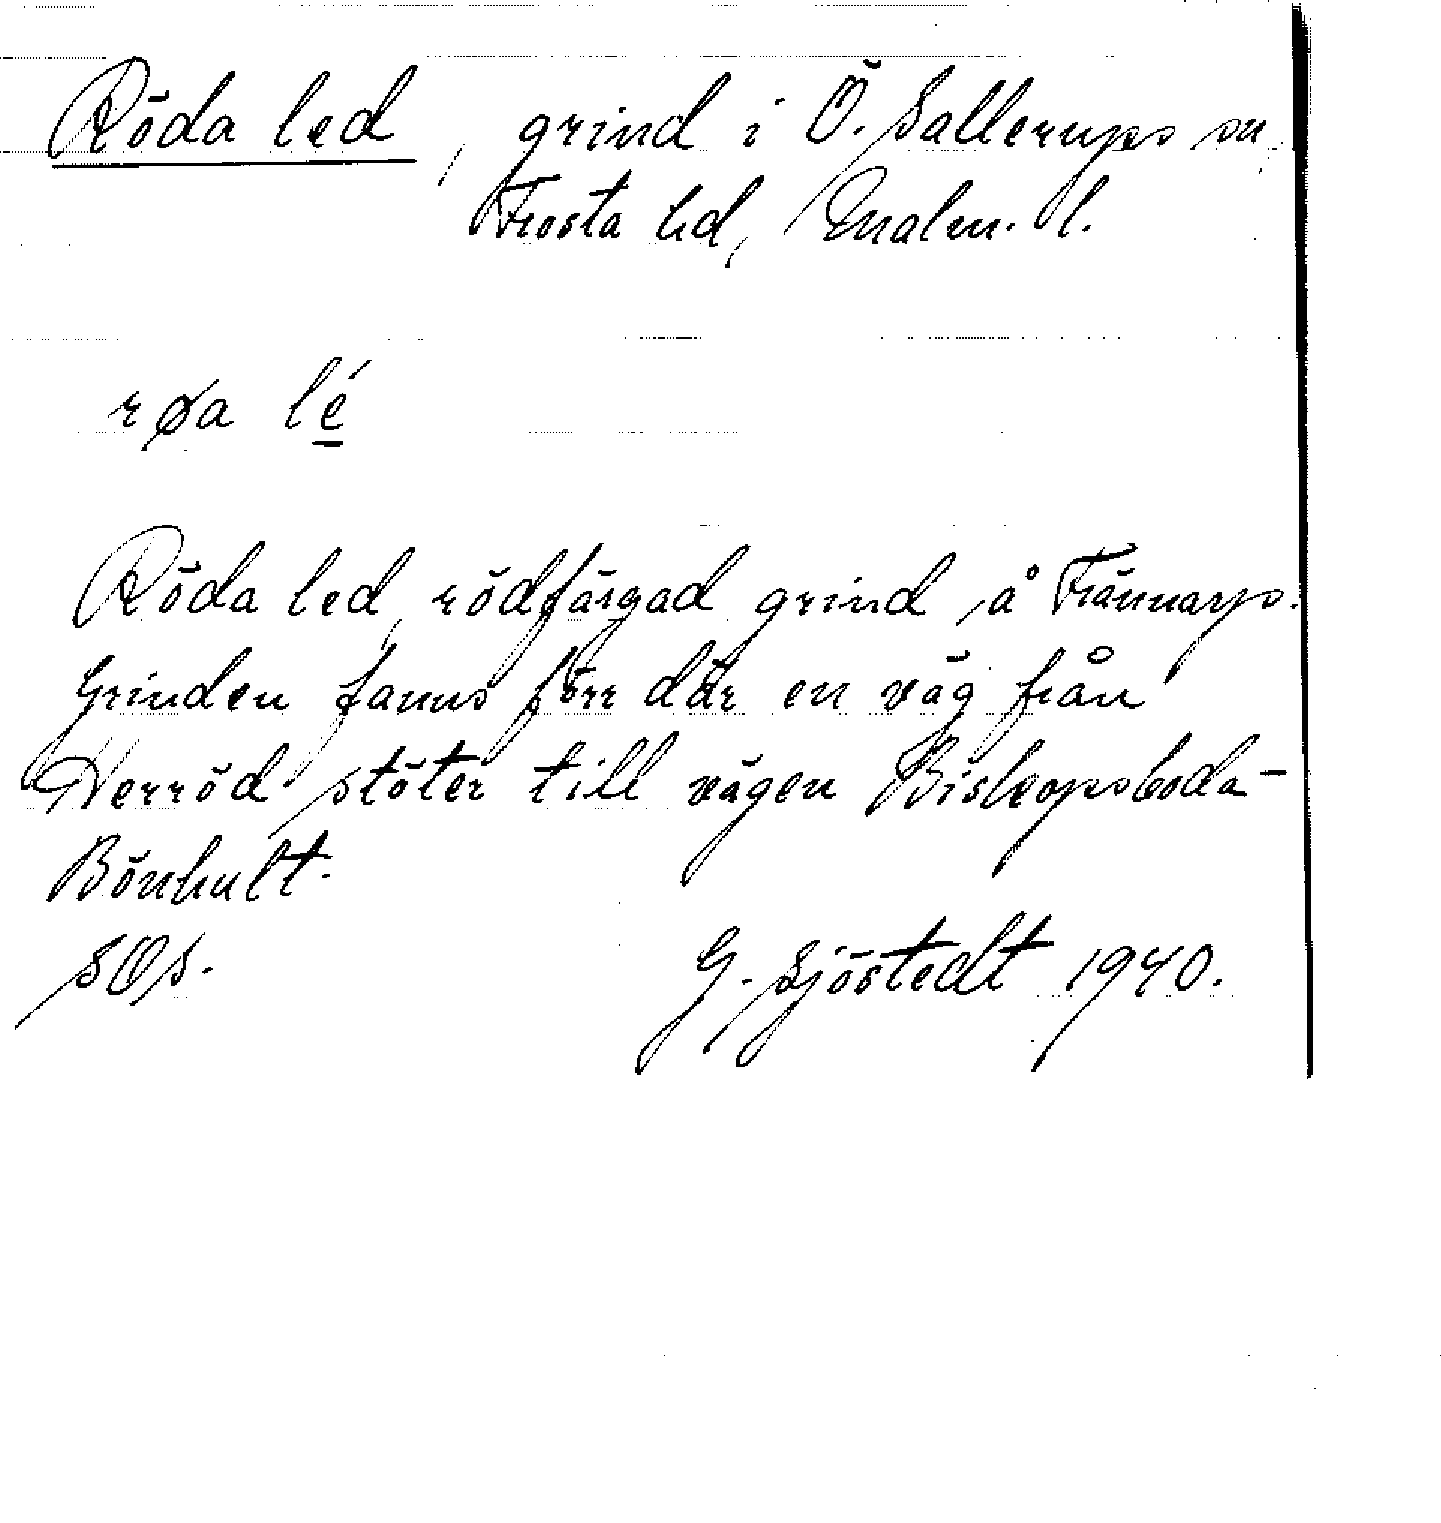 Röda led, grind i Ö. Sallerups sn
Frosta hd, Malm. l.
røa lé
Röda led, rödfärgad grind å Frännarp.
Grinden fanns förr där en väg från
Herröd stöter till vägen Biskopsboda-
Bönhult.
SOs.
G. Sjöstedt 1940.